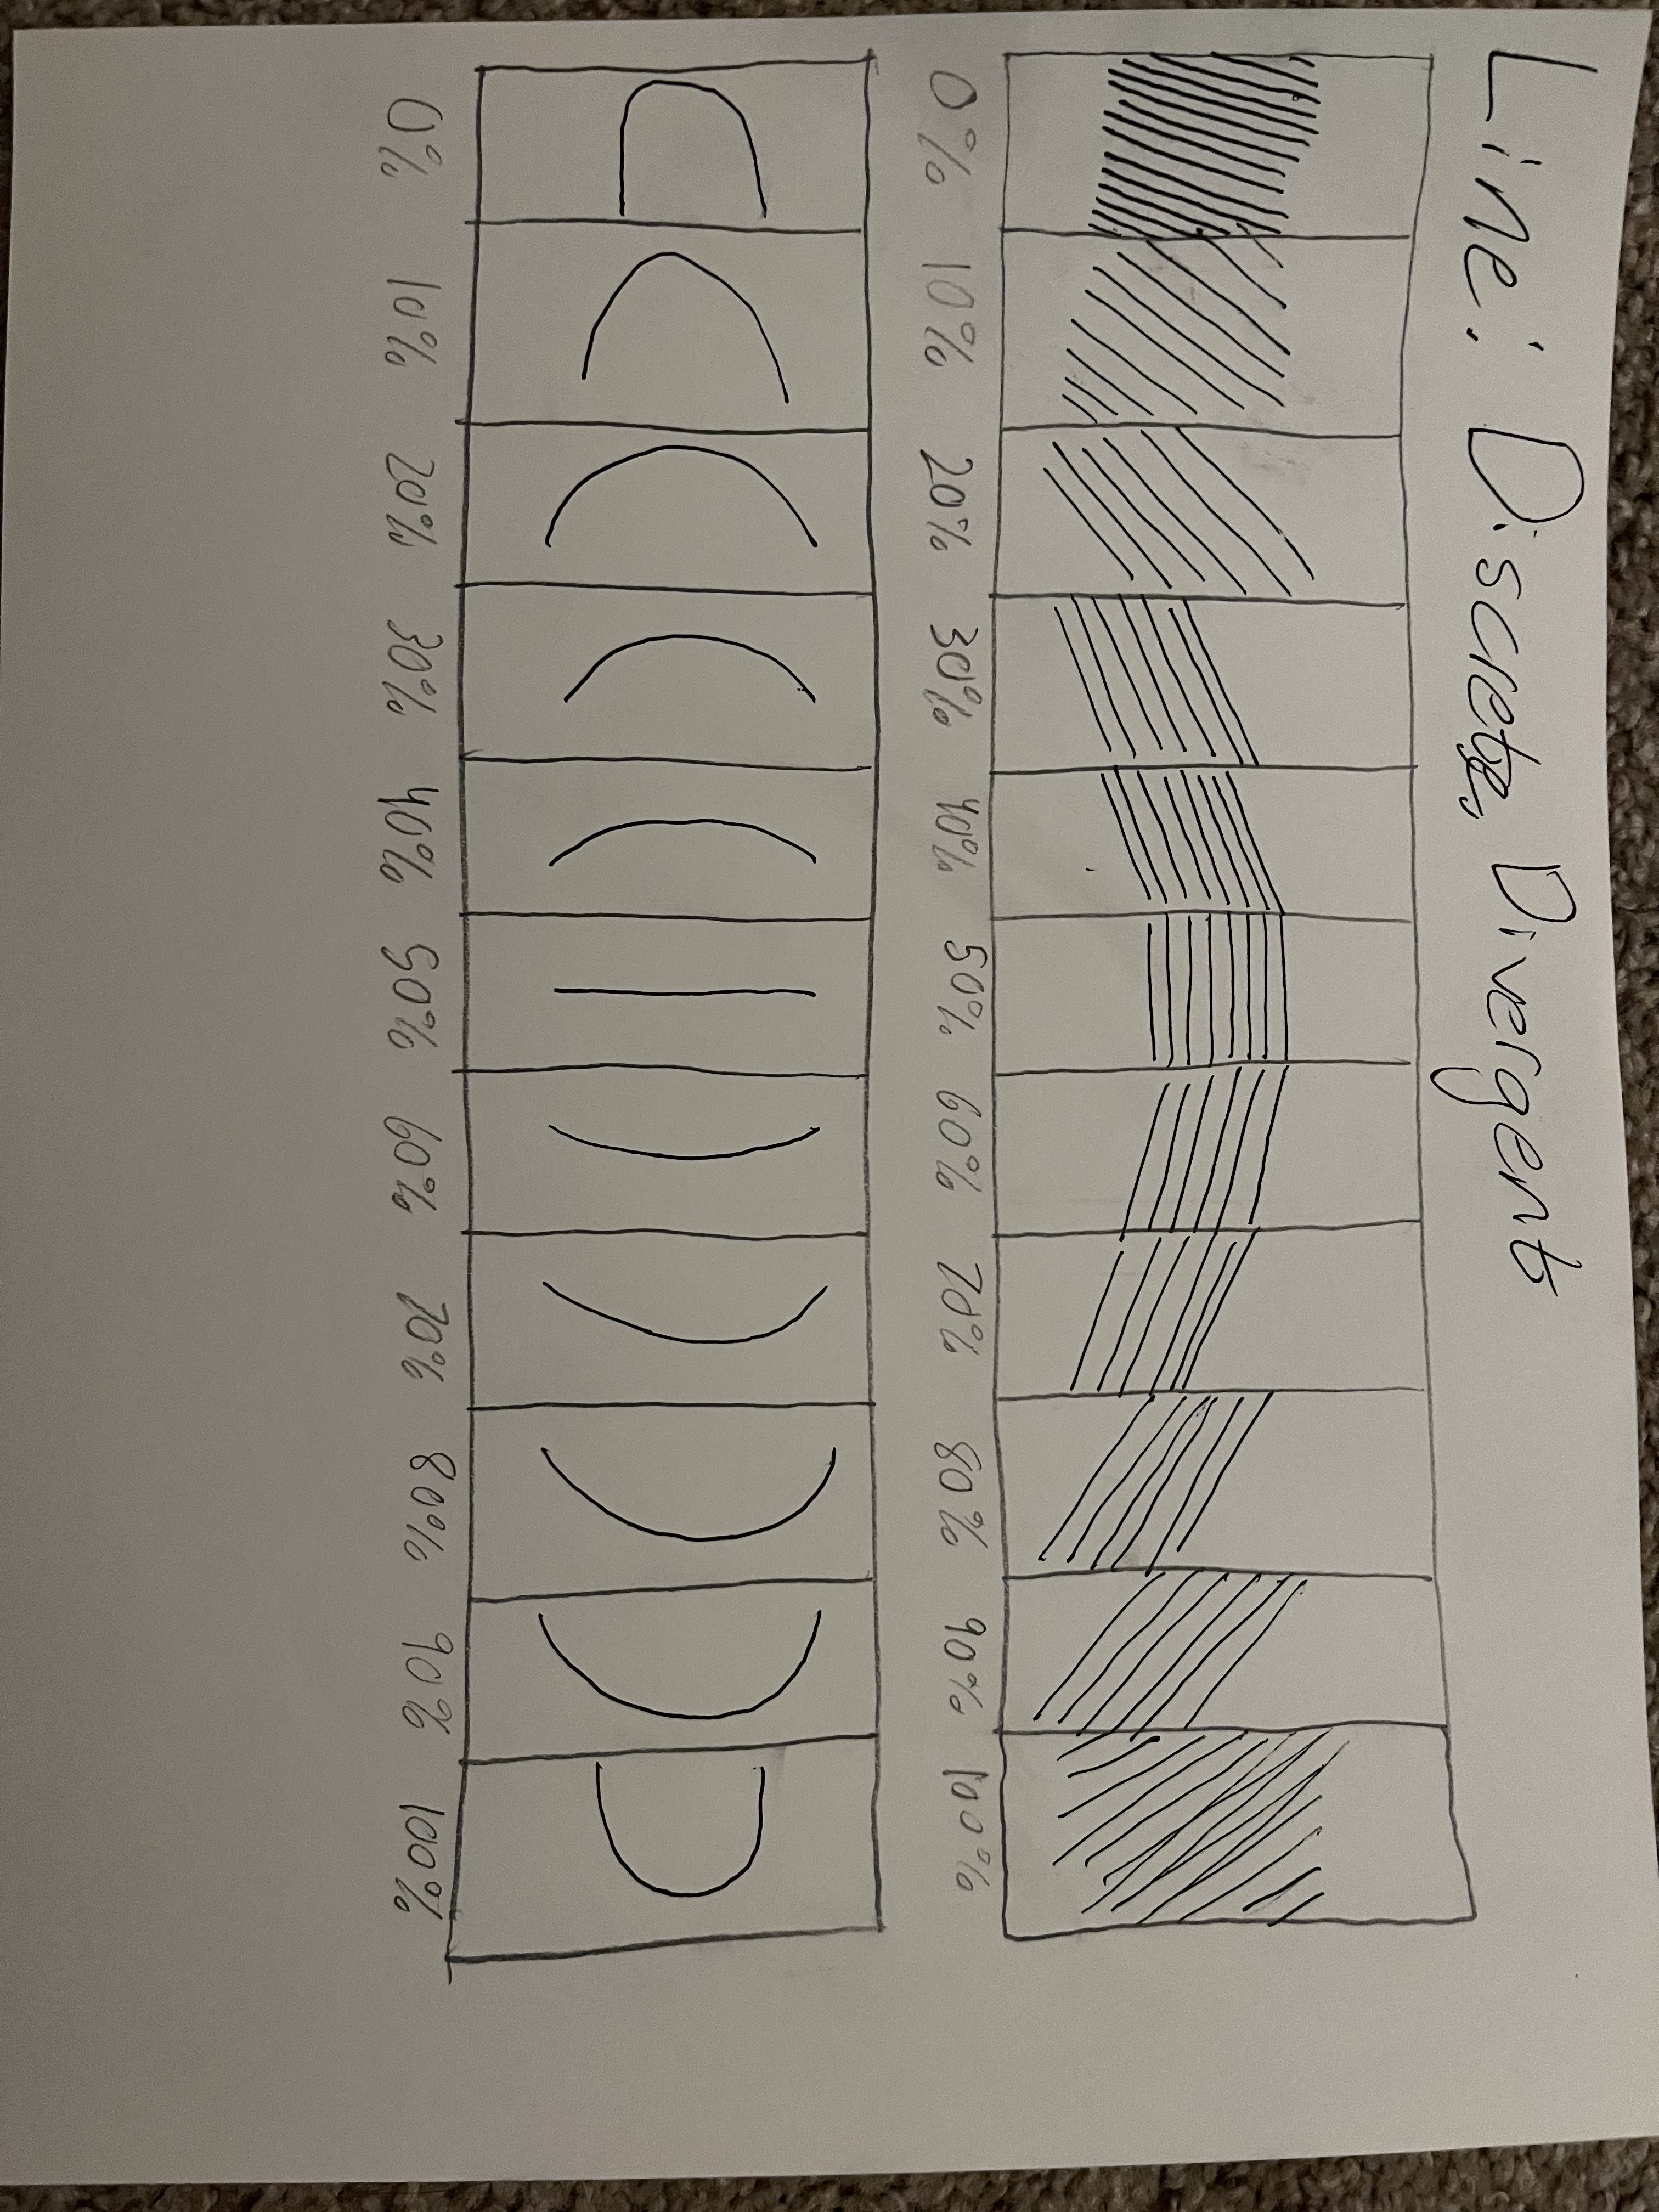 Line: Discrete, Divergent
0% 10% 20% 30% 40% 50% 60% 70% 80% 90% 100%
0% 10% 20% 30% 40% 50% 60% 70% 80% 90% 100%